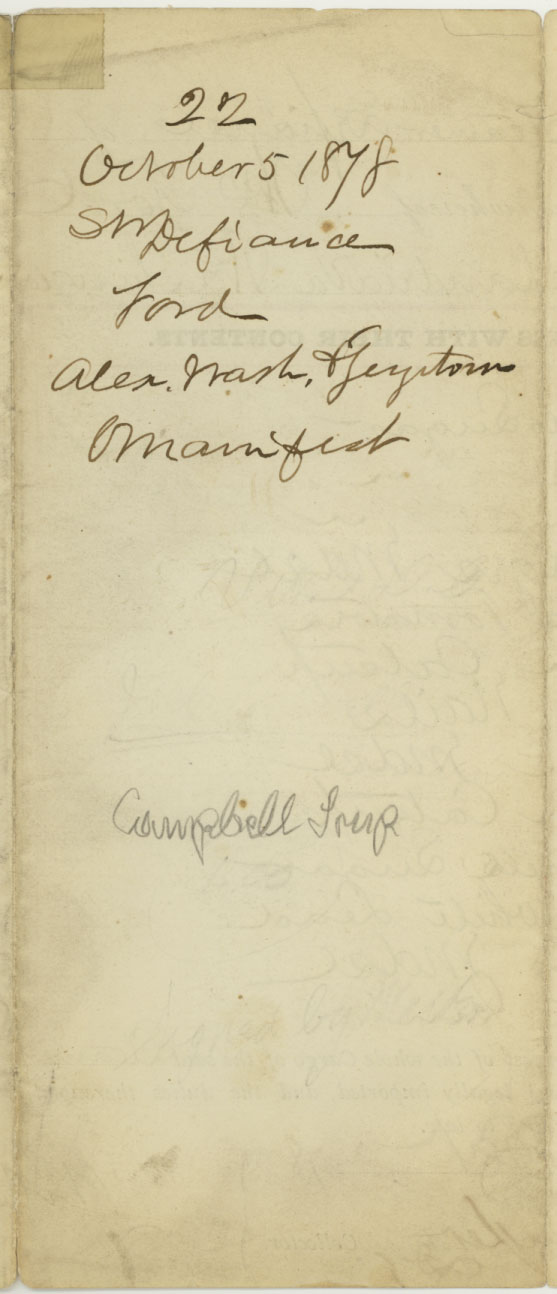 22
October 5 1878
Str Defiance
Ford
Alex. Wash, & Geystown
Manifest
Campbell Insp